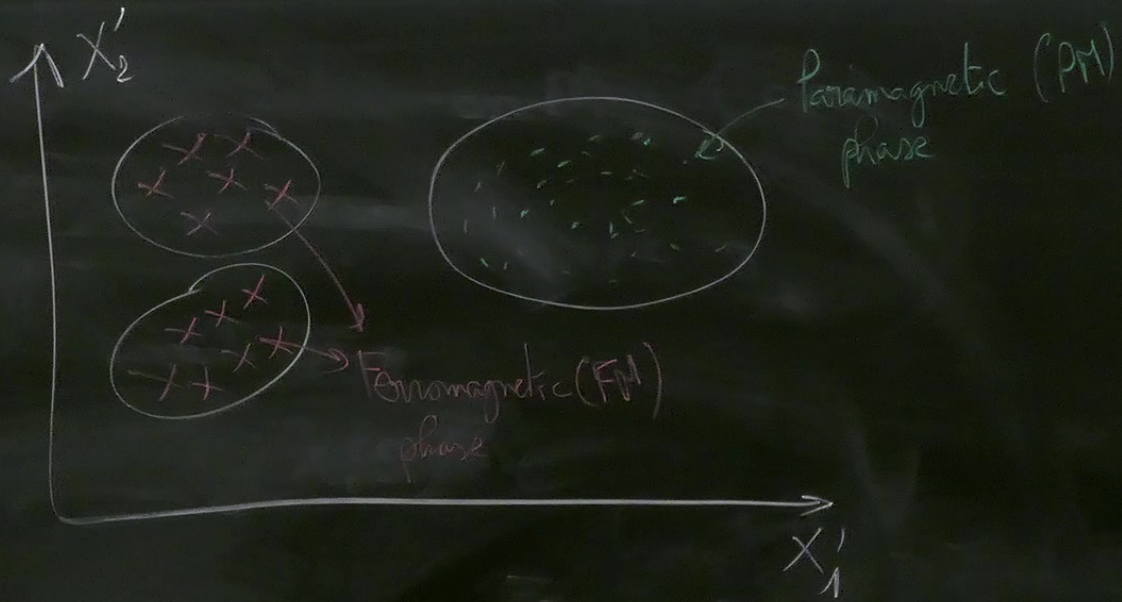 X'₂
Paramagnetic (PM)
phase
Ferromagnetic (FM)
phase
X'₁